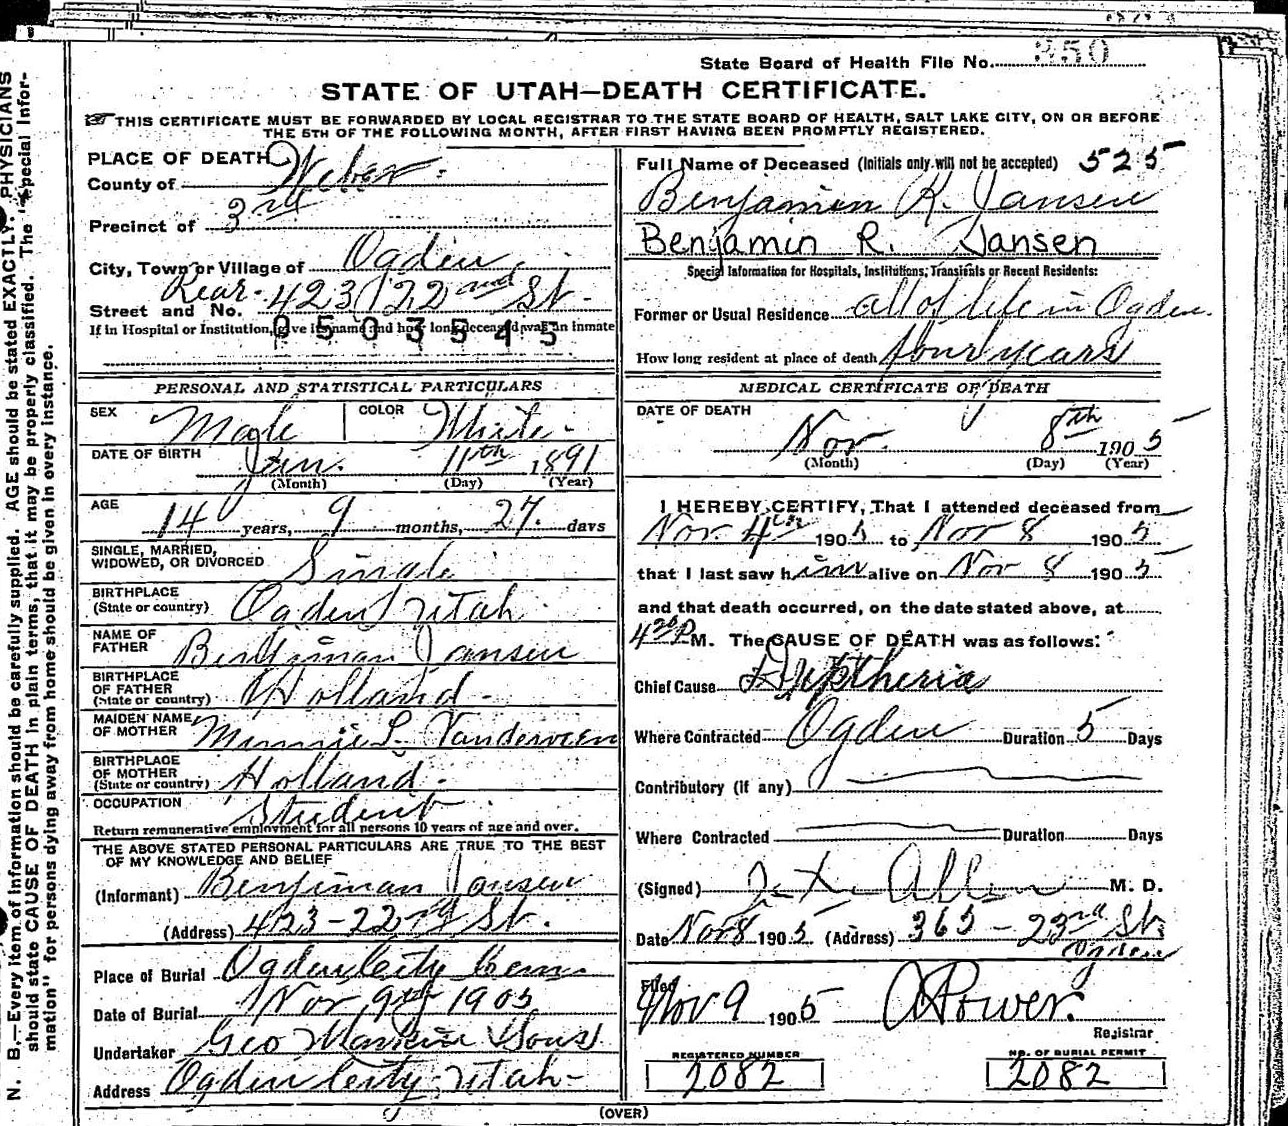 State Board of Health File No. 350
STATE OF UTAH—DEATH CERTIFICATE.
THIS CERTIFICATE MUST BE FORWARDED BY LOCAL REGISTRAR TO THE STATE BOARD OF HEALTH, SALT LAKE CITY, ON OR BEFORE
THE 5TH OF THE FOLLOWING MONTH, AFTER FIRST HAVING BEEN PROMPTLY REGISTERED.
PLACE OF DEATH
County of Weber
Precinct of 3rd
City, Town or Village of Ogden
Street and No. Rear 423 22nd St.
If in Hospital or Institution, give its name and how long deceased was an inmate
0503545
PERSONAL AND STATISTICAL PARTICULARS
SEX Male COLOR White
DATE OF BIRTH Jan. 11th 1891
(Month) (Day) (Year)
AGE 14 years, 9 months, 27 days
SINGLE, MARRIED,
WIDOWED, OR DIVORCED Single
BIRTHPLACE
(State or country) Ogden Utah
NAME OF
FATHER Benjiman Jansen
BIRTHPLACE
OF FATHER
(State or country) Holland
MAIDEN NAME
OF MOTHER Minnie L. Vanderveen
BIRTHPLACE
OF MOTHER
(State or country) Holland
OCCUPATION Student
Return remunerative employment for all persons 10 years of age and over.
THE ABOVE STATED PERSONAL PARTICULARS ARE TRUE TO THE BEST
OF MY KNOWLEDGE AND BELIEF
(Informant) Benjiman Jansen
(Address) 423-22nd St.
Place of Burial Ogden City Cem
Date of Burial Nov 9th 1905
Undertaker Geo Sons
Address Ogden City Utah
Full Name of Deceased (Initials only will not be accepted) 525
Benjamin R. Jansen
Benjamin R. Jansen
Special Information for Hospitals, Institutions, Transients or Recent Residents:
Former or Usual Residence all of life in Ogden
How long resident at place of death four years
MEDICAL CERTIFICATE OF DEATH
DATE OF DEATH
Nov. 8th 1905
(Month) (Day) (Year)
I HEREBY CERTIFY, That I attended deceased from
Nov. 4th 1905 to Nov 8 1905
that I last saw him alive on Nov 8 1905
and that death occurred, on the date stated above, at
4 20 P M. The CAUSE OF DEATH was as follows:
Chief Cause Diptheria
Where Contracted Ogden Duration 5 Days
Contributory (if any)
Where Contracted Duration Days
(Signed) Allen M. D.
Date Nov 8 1905 (Address) 365-23rd St.
Ogden
Filed
Nov 9 1905 Power.
Registrar
REGISTERED NUMBER
2082
NO. OF BURIAL PERMIT
2082
(OVER)
N. B.—Every item of information should be carefully supplied. AGE should be stated EXACTLY. PHYSICIANS
should state CAUSE OF DEATH in plain terms, that it may be properly classified. The "Special Infor-
mation" for persons dying away from home should be given in every instance.